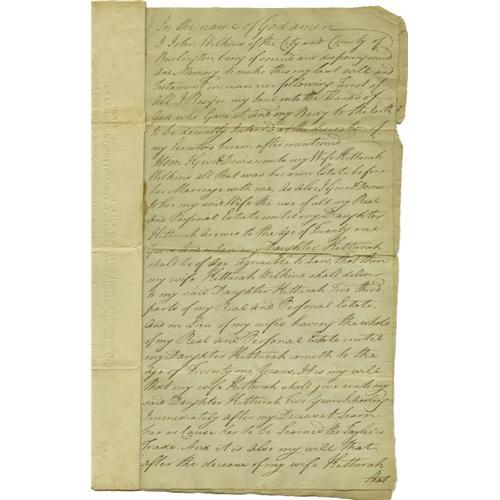 In the name of God amen
I John Wilkins of the City and County of
Burlington, being of sound and disposing mind
and Memory do make this my last will and
Testament in manner following First of
all I Resign my Soul into the Hands of
God who Gave it, And my Body to the Earth
to be decently Interred at the discretion of
my Executors herein after mentioned
Item I give & Devise unto my Wife Hetturah
Wilkins all that was her own Estate before
her Marriage with me, As Also I give & Devise
to her my said Wife the use of all my Real
And Personal Estate until my Daughter
Hetturah Arrives to the Age of Twenty one
Years And when my Daughter Hetturah
shall be of Age Agreeable to Law, that then
my wife Hetturah Wilkins shall deliver
to my said Daughter Hetturah Two third
parts of my Real and Personal Estate,
And in Lieu of my wife's having the whole
of my Real and Personal Estate until
my Daughter Hetturah cometh to the
Age of Twenty one Years, It is my will
that my wife Hetturah shall give unto my
said Daughter Hetturah Two Years Schooling
Immediately after my Decease & Learn
her or Cause her to be Learned the Taylor's
Trade. And it is also my will that
after the decease of my wife Hetturah
that